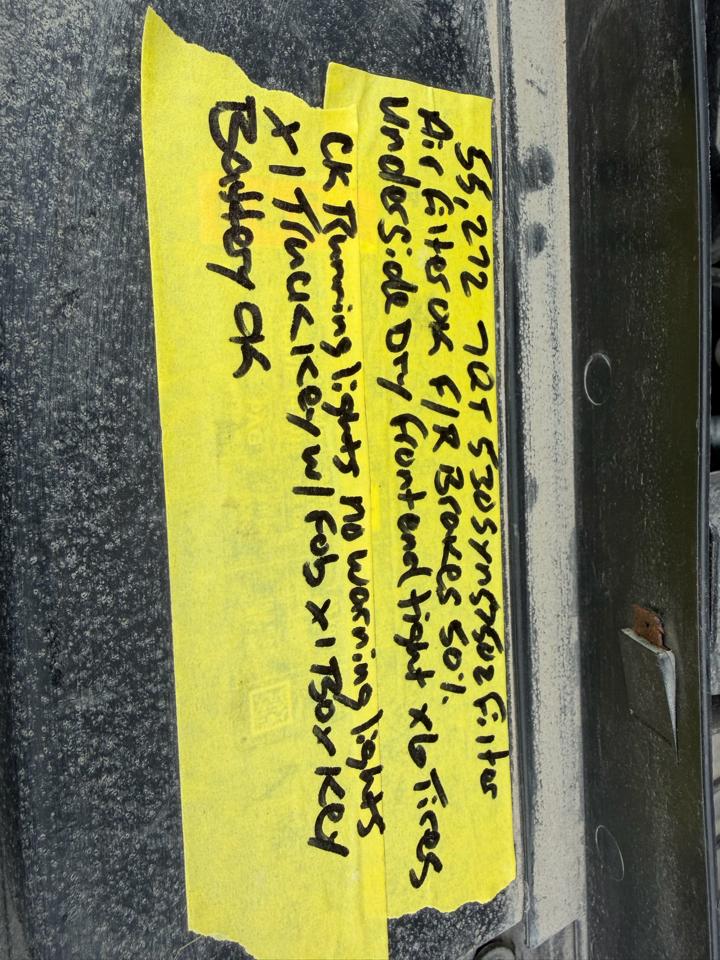 55,272 7QT 530 Syn 57502 Filter
Air Filter OK F/R Brakes 50%
Underside Dry Front end tight x6 Tires
CK Running lights no warning lights
x1 Truck Key w/ Fob x1 TBox Key
Battery OK